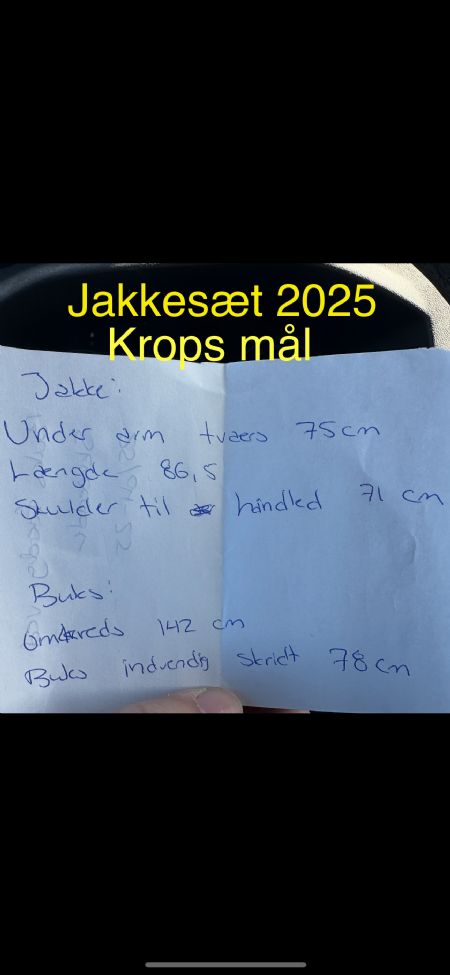 Jakkesæt 2025
Krops mål
Jakke:
Under arm tværs 75 cm
Længde 86,5
Skulder til håndled 71 cm
Buks:
omkreds 142 cm
Buks indvendig skridt 78 cm